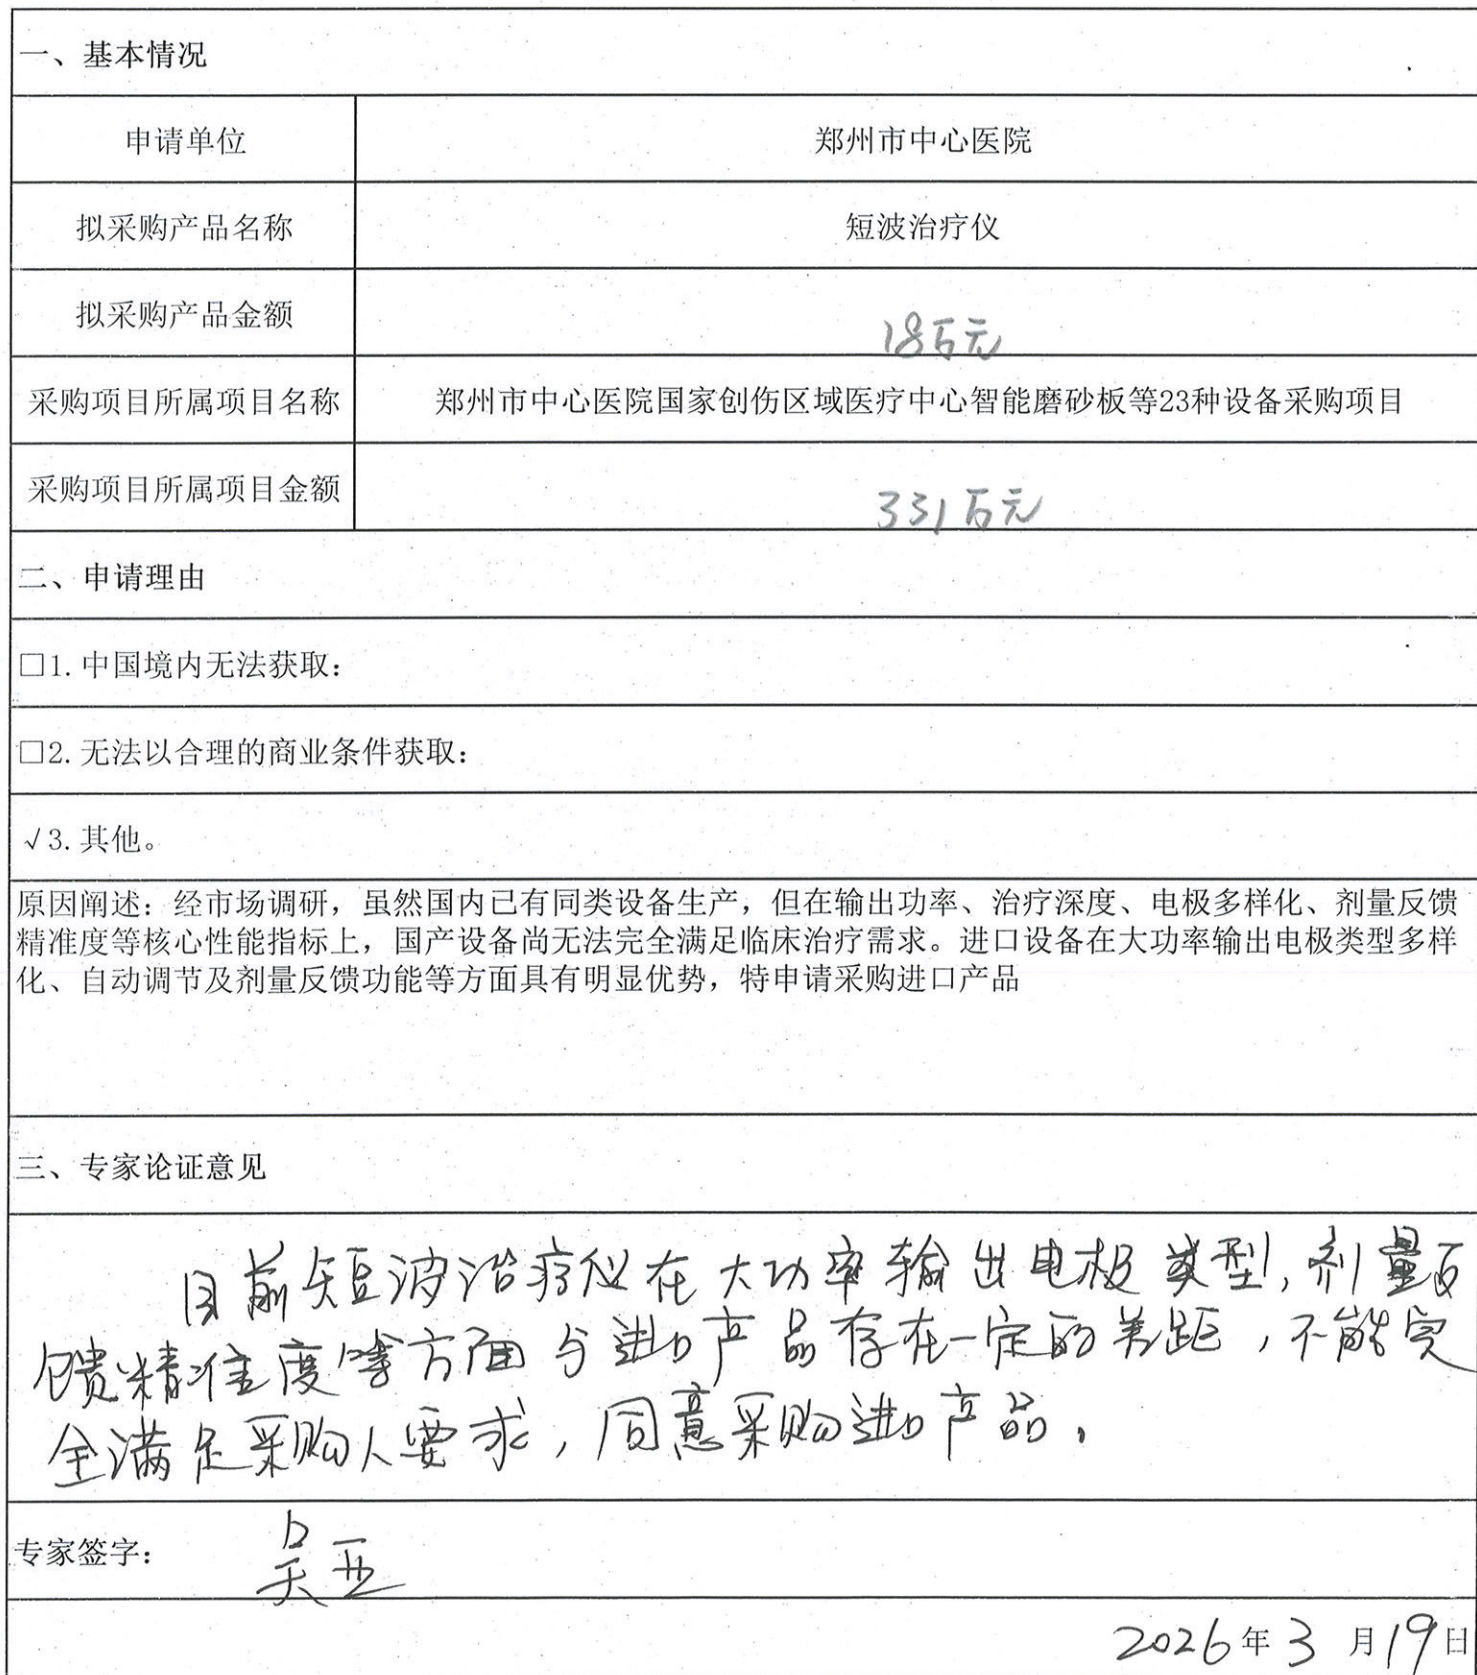 一、基本情况
申请单位 郑州市中心医院
拟采购产品名称 短波治疗仪
拟采购产品金额 18万元
采购项目所属项目名称 郑州市中心医院国家创伤区域医疗中心智能磨砂板等23种设备采购项目
采购项目所属项目金额 331万元
二、申请理由
□1.中国境内无法获取：
□2.无法以合理的商业条件获取：
√3.其他。
原因阐述：经市场调研，虽然国内已有同类设备生产，但在输出功率、治疗深度、电极多样化、剂量反馈
精准度等核心性能指标上，国产设备尚无法完全满足临床治疗需求。进口设备在大功率输出电极类型多样
化、自动调节及剂量反馈功能等方面具有明显优势，特申请采购进口产品
三、专家论证意见
目前短波治疗仪在大功率输出电极类型，剂量反
馈精准度等方面与进口产品存在一定的差距，不能完
全满足采购人要求，同意采购进口产品。
专家签字： 吴亚
2026年3月19日